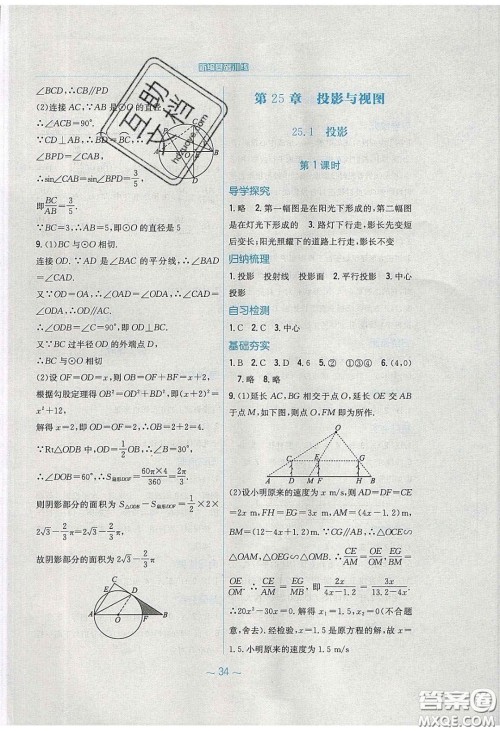 新编基础训练
∠BCD,∴CB∥PD
(2)连接 AC,∵AB 是⊙O 的直径,
∴∠ACB=90°.
∵CD⊥AB,∴
∴∠BPD=∠CAB,
∴sin∠CAB=sin∠BPD=3/5.
即 BC/AB=3/5.
∵BC=3,∴AB=5,即⊙O 的直径是 5
9.(1)BC 与⊙O 相切.
连接 OD.∵AD 是∠BAC 的平分线,∴∠BAD
=∠CAD.
又∵OD=OA,∴∠OAD=∠ODA.∴∠CAD
=∠ODA.∴OD∥AC.
∴∠ODB=∠C=90°,即 OD⊥BC.
又∵BC 过半径 OD 的外端点 D,
∴BC 与⊙O 相切
(2)设 OF=OD=x,则 OB=OF+BF=x+2,
根据勾股定理得 OB²=OD²+BD²,即(x+2)²=
x²+12,
解得 x=2,即 OD=OF=2,∴OB=2+2=4.
∵Rt△ODB 中,OD=1/2 OB,∴∠B=30°.
∴∠DOB=60°.∴S扇形DOF=60π×4/360=2π/3.
则阴影部分的面积为 S△ODB-S扇形DOF=1/2×2×
2√3-2/3π=2√3-2/3π,
故阴影部分的面积为 2√3-2/3π
第 25 章 投影与视图
25.1 投影
第 1 课时
导学探究
1.略 2.第一幅图是在阳光下形成的,第二幅图
是在灯光下形成的 3.路灯下行走,影长先变短
后变长;阳光照耀下的道路上行走,影长不变
归纳梳理
1.投影 投射线 投影面 2.平行投影 3.中心
投影
自习检测
1.C 2.C 3.中心
基础夯实
1.B 2.C 3.D 4.6 5.② ①③④ 6.(4,0)
7.略 8.略
9.(1)延长 AC,BG 相交于点 O,延长 OE 交 AB
于点 M,如图,则点 O,FM 即为所作.
(2)设小明原来的速度为 x m/s,则 AD=DF=CE
=2x m,FH=EG=3x m,AM=(4x-1.2) m,
BM=(12-4x+1.2) m.∵CG∥AB,∴△OCE∽
△OAM,△OEG∽△OMB.∴CE/AM=OE/OM,EG/MB=
OE/OM.∴CE/AM=EG/BM,即 2x/(4x-1.2)=3x/(13.2-4x).
∴20x²-30x=0.解得 x₁=1.5,x₂=0(不合题
意,舍去).经检验,x=1.5 是原方程的解,故 x=
1.5.小明原来的速度为 1.5 m/s
～ 34 ～
互助文档
答案圈
MXQE.COM